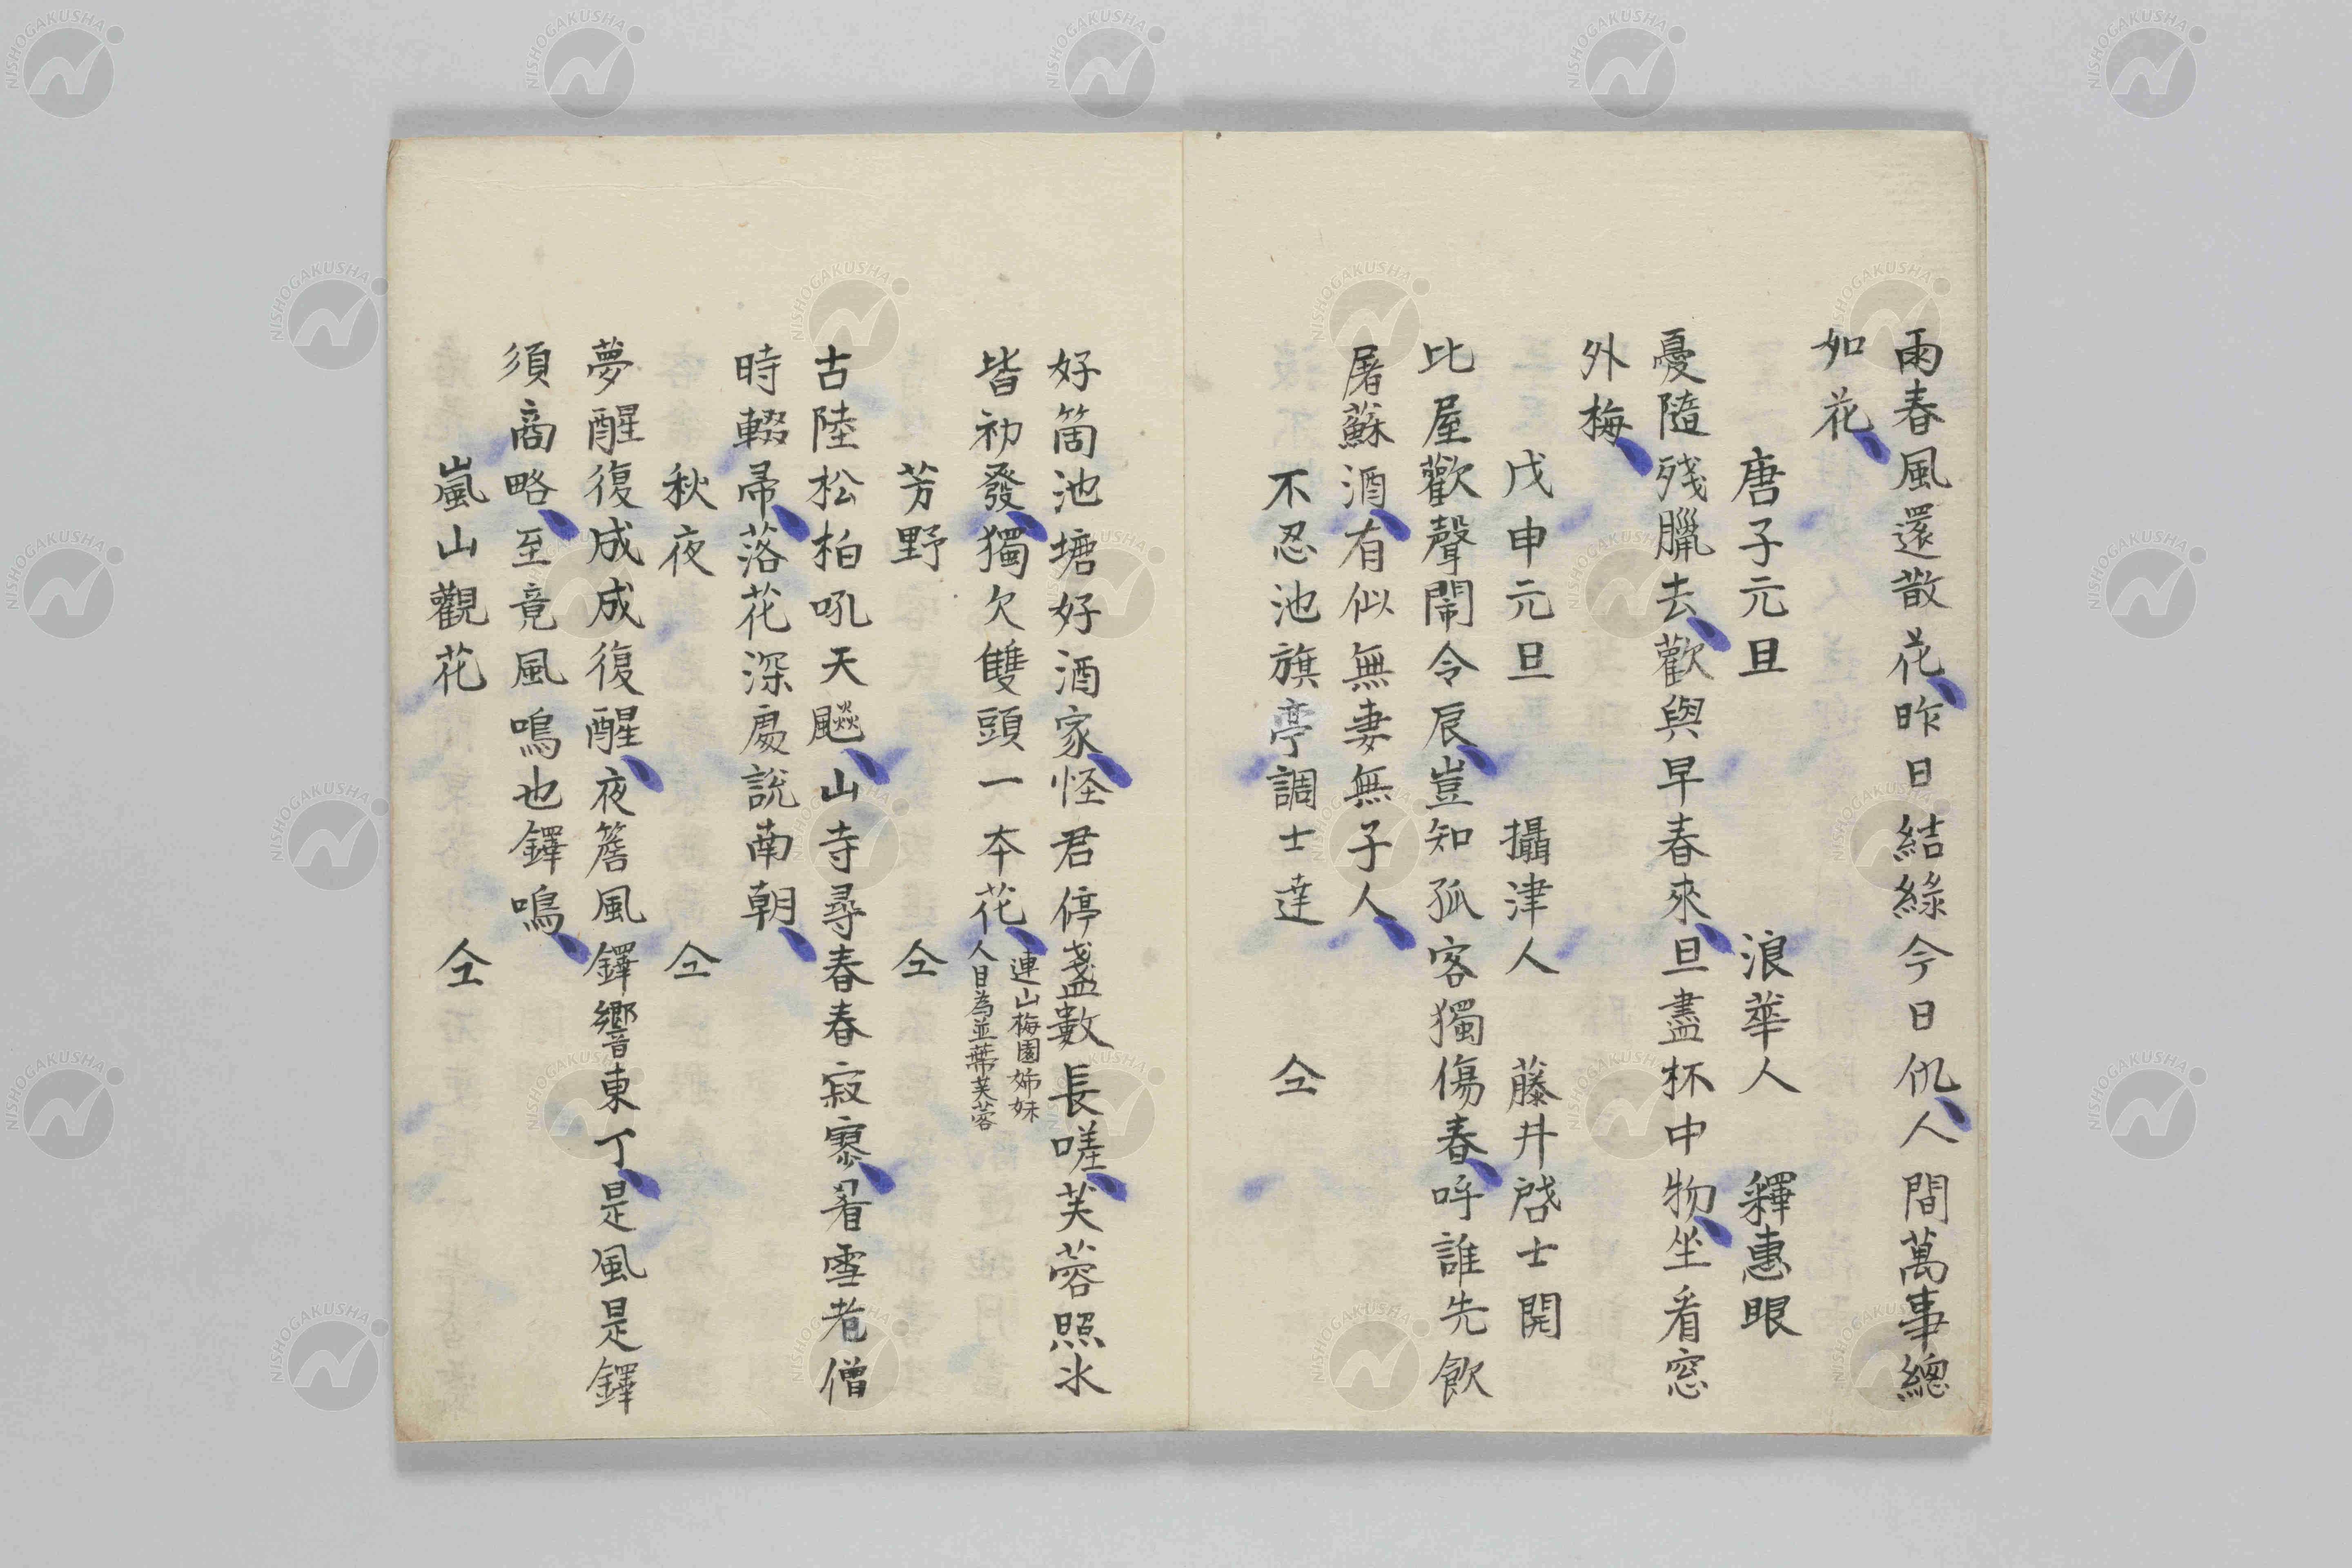 雨春風還散花昨日結綠今日仇人間萬事總
如花
唐子元旦　浪華人　釋惠眼
憂隨殘臘去歡與早春來旦盡杯中物坐看窓
外梅
戊申元旦　攝津人　藤井啓士開
比屋歡聲鬧令辰豈知孤客獨傷春呼誰先飲
屠蘇酒有似無妻無子人
不忍池旗亭調士達　仝
好箇池塘好酒家怪君停盞數長嗟芙蓉照氷
皆初發獨欠雙頭一本花
連山梅園姊妹
人目為並蔕芙蓉
芳野　仝
古陸松柏吼天飈山寺尋春春寂寥看雪老僧
時輟帚落花深處說南朝
秋夜　仝
夢醒復成成復醒夜簷風鐸響東丁是風是鐸
須商略至竟風鳴也鐸鳴
嵐山觀花　仝
NISHOGAKUSHA